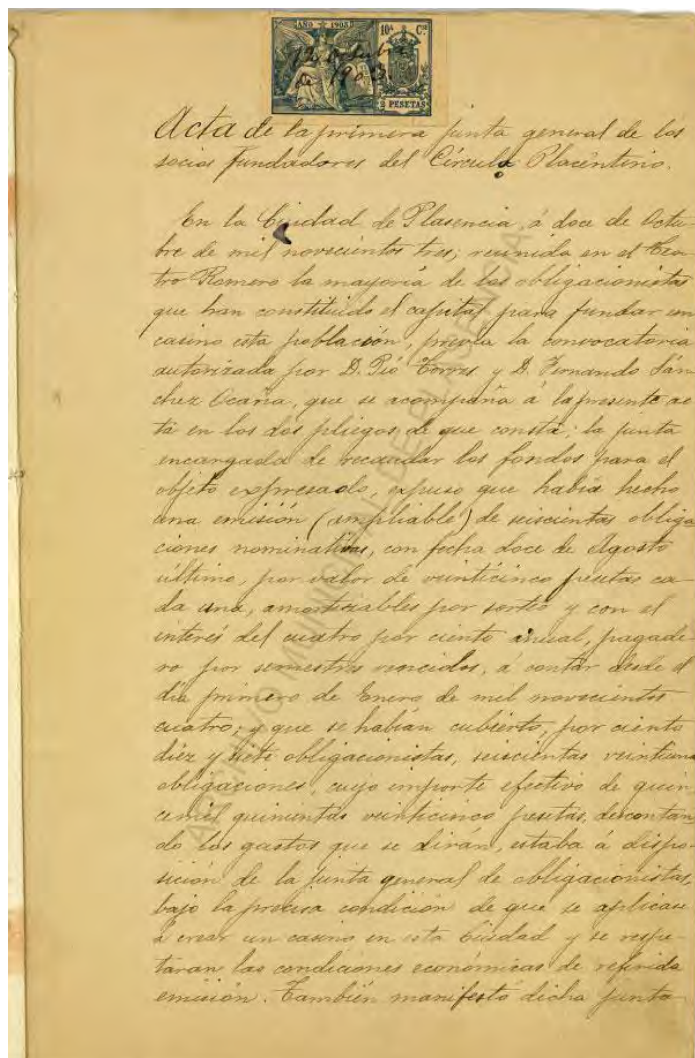 AÑO 1903
10ª Cse
12 Octubre
de 1903.
2 PESETAS
Acta de la primera junta general de los
socios fundadores del Círculo Placentino.
En la Ciudad de Plasencia, á doce de Octu-
bre de mil novecientos tres; reunida en el Tea-
tro Romero la mayoría de los obligacionistas
que han constituido el capital para fundar un
casino esta población, previa la convocatoria
autorizada por D. Pío Torres y D. Fernando Sán-
chez Ocaña, que se acompaña á la presente ac-
ta en los dos pliegos de que consta; la junta
encargada de recaudar los fondos para el
objeto expresado, expuso que había hecho
una emisión (ampliable) de seiscientas obliga
ciones nominativas, con fecha doce de Agosto
último, por valor de veinticinco pesetas ca-
da una, amortizables por sorteo y con el
interés del cuatro por ciento anual, pagade-
ro por semestres vencidos, á contar desde el
día primero de Enero de mil novecientos
cuatro; y que se habían cubierto, por ciento
diez y siete obligacionistas, seiscientas veintiuna
obligaciones, cuyo importe efectivo de quin-
ce mil quinientas veinticinco pesetas, descontan
do los gastos que se dirán, estaba á dispo-
sición de la junta general de obligacionistas,
bajo la precisa condición de que se aplicase
á crear un casino en esta Ciudad y se respe-
taran las condiciones económicas de referida
emisión. También manifestó dicha junta
ARCHIVO MUNICIPAL DE PLASENCIA